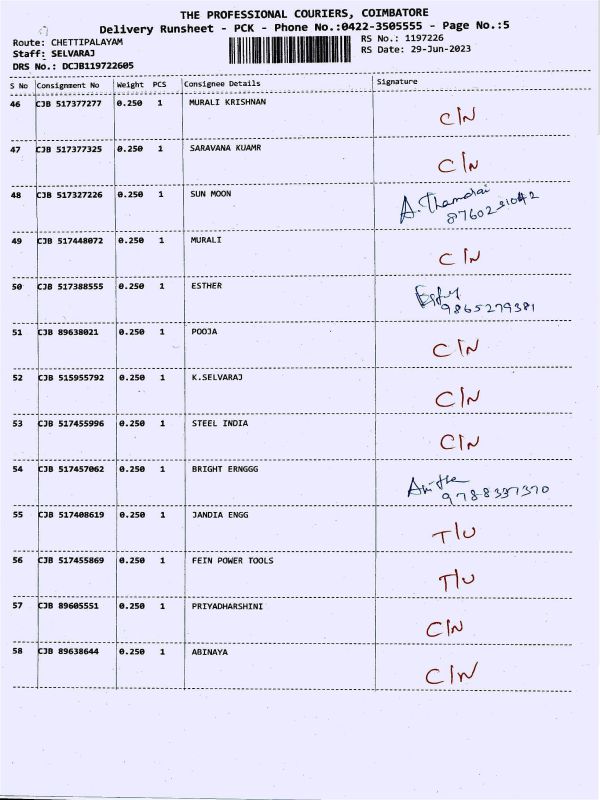 THE PROFESSIONAL COURIERS, COIMBATORE
Delivery Runsheet - PCK - Phone No.:0422-3505555 - Page No.:5
Route: CHETTIPALAYAM
RS No.: 1197226
Staff: SELVARAJ
RS Date: 29-Jun-2023
DRS No.: DCJB119722605
S No Consignment No Weight PCS Consignee Details Signature
46 CJB 517377277 0.250 1 MURALI KRISHNAN C/N
47 CJB 517377325 0.250 1 SARAVANA KUAMR C/N
48 CJB 517327226 0.250 1 SUN MOON A. Thamarai
49 CJB 517448072 0.250 1 MURALI C/N
50 CJB 517388555 0.250 1 ESTHER
9865279381
51 CJB 89638021 0.250 1 POOJA C/N
52 CJB 515955792 0.250 1 K.SELVARAJ C/N
53 CJB 517455996 0.250 1 STEEL INDIA C/N
54 CJB 517457062 0.250 1 BRIGHT ERNGGG
55 CJB 517408619 0.250 1 JANDIA ENGG T/U
56 CJB 517455869 0.250 1 FEIN POWER TOOLS T/U
57 CJB 89605551 0.250 1 PRIYADHARSHINI C/N
58 CJB 89638644 0.250 1 ABINAYA C/N